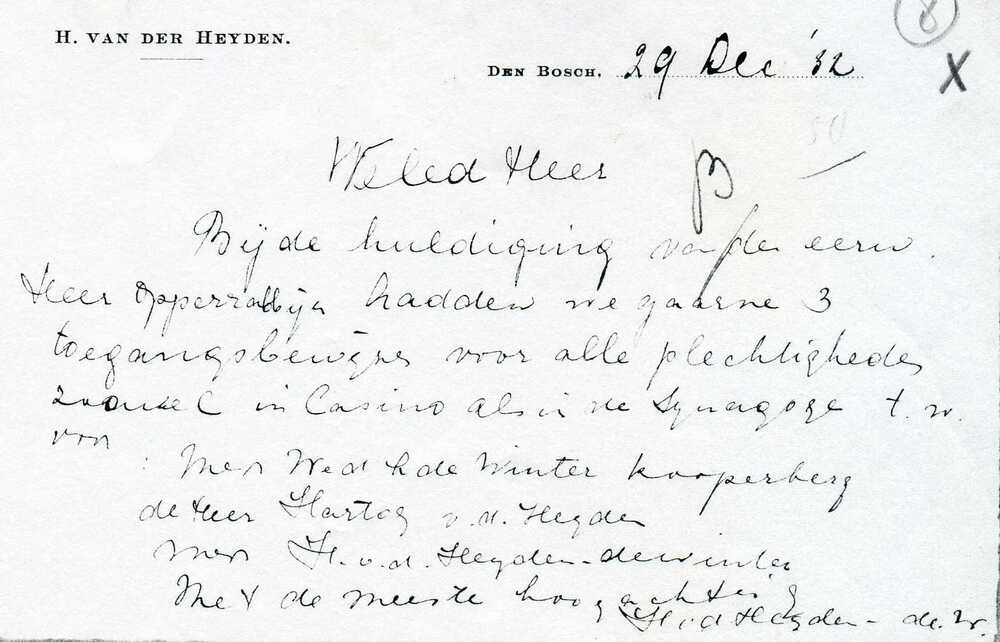 8
H. VAN DER HEYDEN.
X
DEN BOSCH. 29 Dec '32
WelEd Heer
Bij de huldiging van den eerw.
Heer Opperrabbijn hadden we gaarne 3
toegangsbewijzen voor alle plechtigheden
zoowel in Casino als in de Synagoge t. w.
voor
: Mevr Wed h de Winter Kooperberg
de Heer Hartog v. d. Heyden
Mevr H. v. d. Heyden-de Winter
Met de meeste hoogachting
H v d Heyden-de. W.